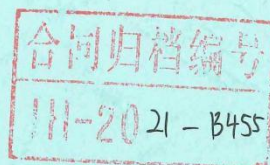 合同归档编号
JH-2021-B455